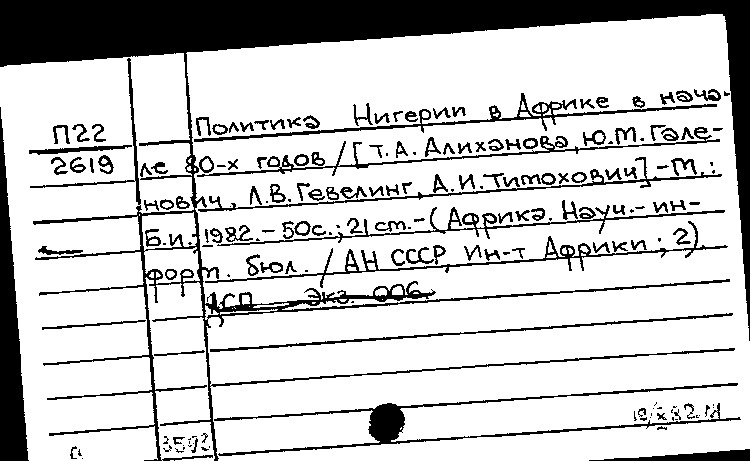 П22
2619
Политика Нигерии в Африке в нача-
ле 80-х годов / [Т.А. Алиханова, Ю.М. Гале-
нович, Л.В. Гевелинг, А.И. Тимохович]. - М.:
Б.и., 1982. - 50с.; 21 ст. - (Африка. Науч.-ин-
форм. бюл. / АН СССР, Ин-т Африки; 2).
ДСП Экз. 006